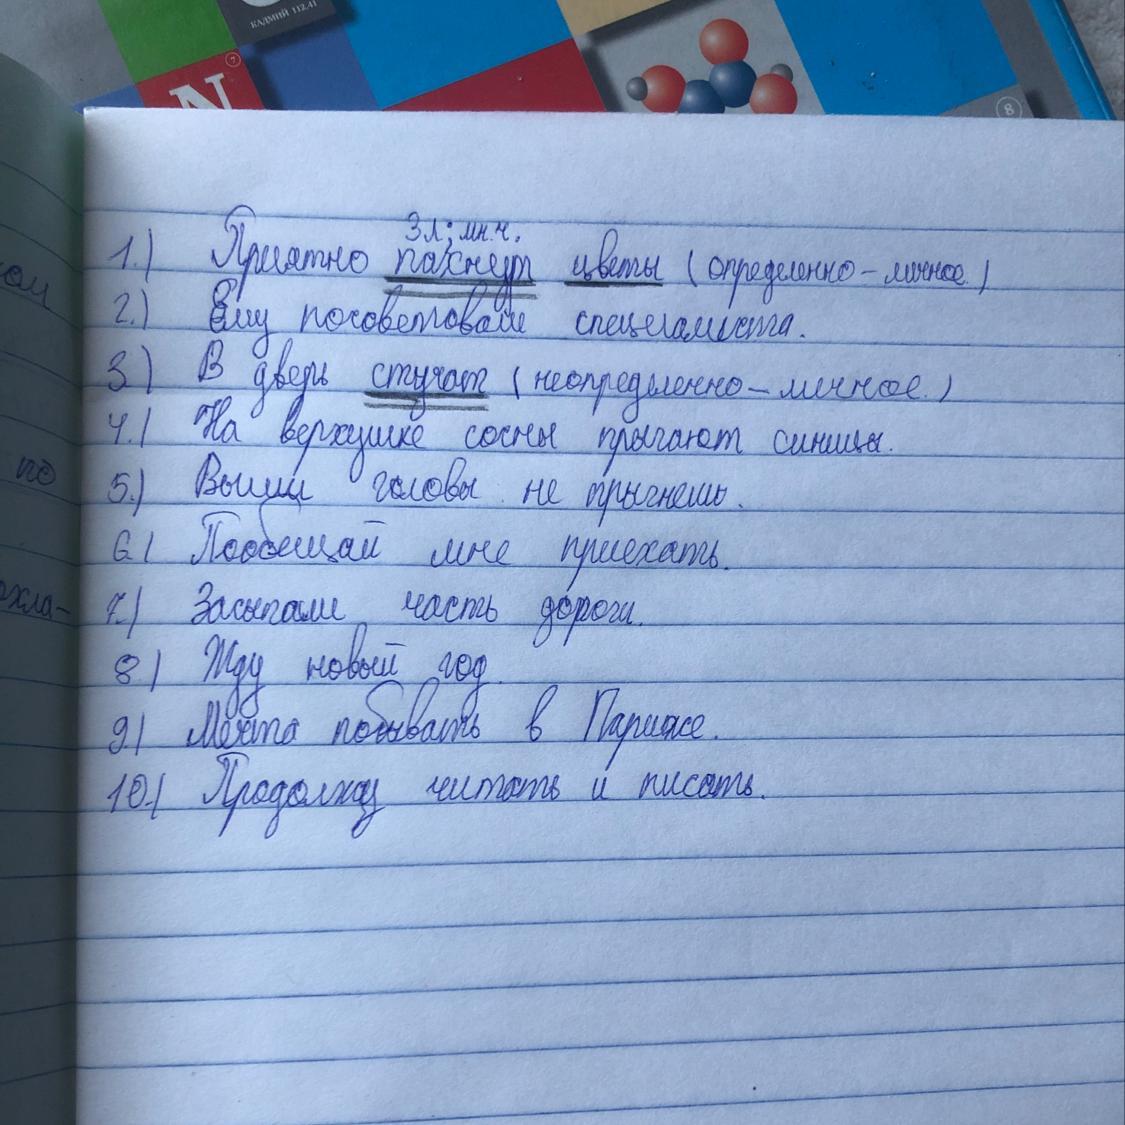 КАДМИЙ 112,41
N 7
8
3 л; мн.ч.
1.) Приятно пахнут цветы (определенно-личное.)
2.) Ему посоветовали специалиста.
3.) В дверь стучат (неопределенно-личное.)
4.) На верхушке сосны прыгают синицы.
по
5.) Выше головы не прыгнешь.
6) Пообещай мне приехать.
охла-
7.) Засыпали часть дороги.
8.) Жду новый год.
9) Мечта побывать в Париже.
10.) Продолжу читать и писать.